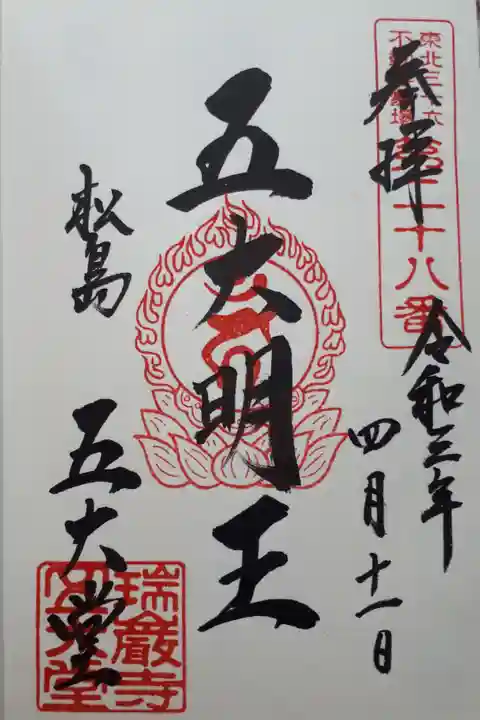 東北三十六
不動霊場
第二十八番
奉拝
令和三年
四月十一日
五大明王
松島
五大堂
瑞巌寺
五大堂